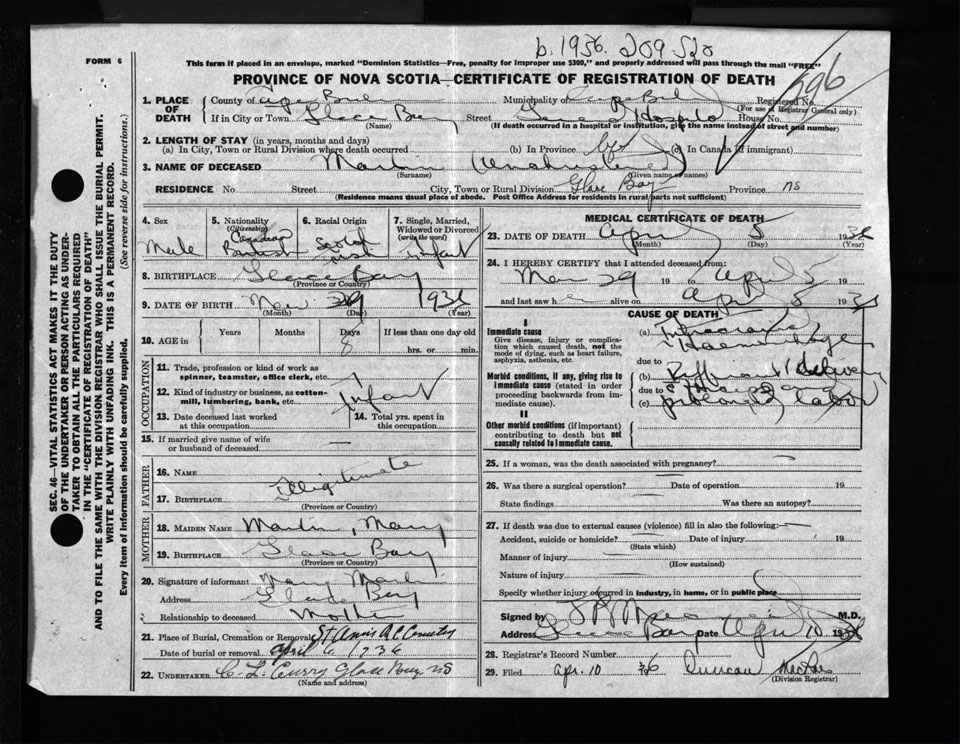 b. 1936. 209520
FORM 6
This form if placed in an envelope, marked "Dominion Statistics—Free, penalty for improper use $300," and properly addressed will pass through the mail "FREE"
PROVINCE OF NOVA SCOTIA—CERTIFICATE OF REGISTRATION OF DEATH
696
1. PLACE OF DEATH
County of Cape Breton Municipality of Cape Breton Registered No.
(For use of Registrar General only)
If in City or Town Glace Bay Street General Hospital House No.
(Name) (If death occurred in a hospital or institution, give the name instead of street and number)
2. LENGTH OF STAY (in years, months and days)
(a) In City, Town or Rural Division where death occurred (b) In Province (c) In Canada (if immigrant)
3. NAME OF DECEASED Martin (Unchristened)
(Surname) (Given name or names)
RESIDENCE No Street City, Town or Rural Division Glace Bay Province NS
(Residence means usual place of abode. Post Office Address for residents in rural parts not sufficient)
4. Sex
Male
5. Nationality (Citizenship)
Canadian
British
6. Racial Origin
Scotch
Irish
7. Single, Married, Widowed or Divorced (write the word)
infant
8. BIRTHPLACE Glace Bay
(Province or Country)
9. DATE OF BIRTH Mar 29 1936
(Month) (Day) (Year)
10. AGE in Years Months Days If less than one day old
8 hrs. or min.
OCCUPATION
11. Trade, profession or kind of work as spinner, teamster, office clerk, etc.
12. Kind of industry or business, as cotton-mill, lumbering, bank, etc. Infant
13. Date deceased last worked at this occupation
14. Total yrs. spent in this occupation
15. If married give name of wife or husband of deceased —
FATHER
16. NAME illegitimate
17. BIRTHPLACE
(Province or Country)
MOTHER
18. MAIDEN NAME Martin, Mary
19. BIRTHPLACE Glace Bay
(Province or Country)
20. Signature of informant Mary Martin
Address Glace Bay
Relationship to deceased Mother
21. Place of Burial, Cremation or Removal St Anns R C Cemetery
Date of burial or removal April 6 1936
22. UNDERTAKER C. L. Curry Glace Bay NS
(Name and address)
MEDICAL CERTIFICATE OF DEATH
23. DATE OF DEATH April 5 1936
(Month) (Day) (Year)
24. I HEREBY CERTIFY that I attended deceased from:
Mar 29 19 to April 5 19
and last saw h alive on April 5 1936
CAUSE OF DEATH
I
Immediate cause
Give disease, injury or complication which caused death, not the mode of dying, such as heart failure, asphyxia, asthenia, etc.
(a) Intracranial Haemorrhage
due to
Morbid conditions, if any, giving rise to immediate cause (stated in order proceeding backwards from immediate cause).
(b) delivery
due to
(c) prolonged labor
II
Other morbid conditions (if important) contributing to death but not causally related to immediate cause.
25. If a woman, was the death associated with pregnancy? —
26. Was there a surgical operation? — Date of operation 19
State findings Was there an autopsy?
27. If death was due to external causes (violence) fill in also the following: —
Accident, suicide or homicide? Date of injury 19
(State which)
Manner of injury
(How sustained)
Nature of injury
Specify whether injury occurred in industry, in home, or in public place
Signed by M.D.
Address Glace Bay Date Apr 10 1936
28. Registrar's Record Number
29. Filed Apr. 10 36 Duncan
(Division Registrar)
SEC. 46—VITAL STATISTICS ACT MAKES IT THE DUTY
OF THE UNDERTAKER OR PERSON ACTING AS UNDER-
TAKER TO OBTAIN ALL THE PARTICULARS REQUIRED
IN THE "CERTIFICATE OF REGISTRATION OF DEATH"
AND TO FILE THE SAME WITH THE DIVISION REGISTRAR WHO SHALL ISSUE THE BURIAL PERMIT.
WRITE PLAINLY WITH UNFADING INK. THIS IS A PERMANENT RECORD.
Every item of information should be carefully supplied. (See reverse side for instructions.)